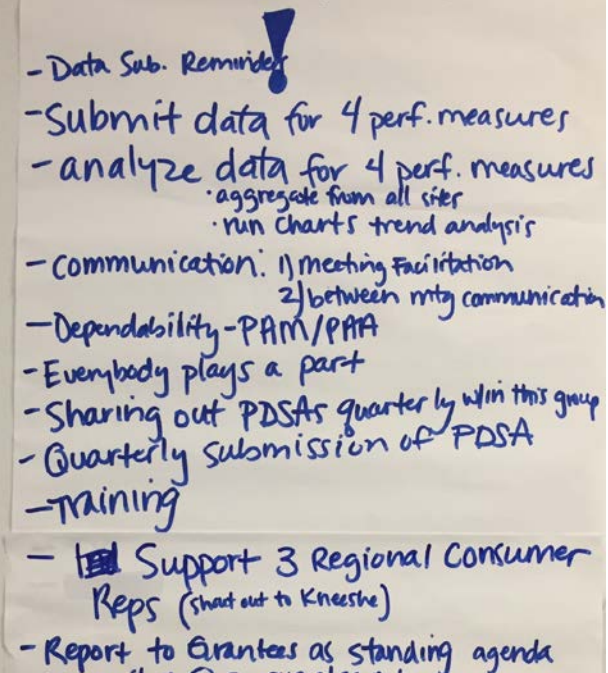 - Data Sub. Reminder!
- Submit data for 4 perf. measures
- analyze data for 4 perf. measures
· aggregate from all sites
· run charts trend analysis
- Communication: 1) meeting Facilitation
2) between mtg communication
- Dependability - PAM/PAA
- Everybody plays a part
- Sharing out PDSAs quarterly w/in this group
- Quarterly submission of PDSA
- Training
- Support 3 Regional Consumer
Reps (shout out to Kneeshe)
- Report to Grantees as standing agenda